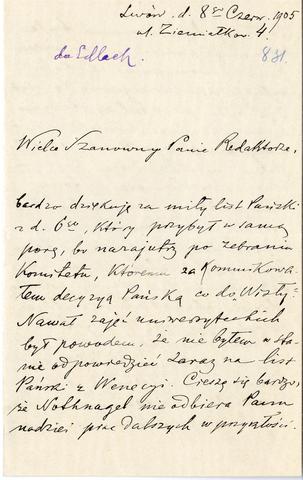 Lwów. d. 8go Czerw. 1905
ul. Ziemiałkow. 4.
do Edlach.
831.
Wielce Szanowny Panie Redaktorze,
bardzo dziękuję za miły list Pański
z d. 6go, który przybył w samą
porę, bo nazajutrz po zebraniu
Komitetu, któremu zakomunikowa-
łem decyzyą Pańską co do Wisły.
Nawał zajęć uniwersyteckich
był powodem, że nie byłem w sta-
nie odpowiedzieć zaraz na list
Pański z Wenecyi. Cieszę się bardzo,
że Nothnagel nie odbiera Panu
nadziei prac dalszych w przyszłości.